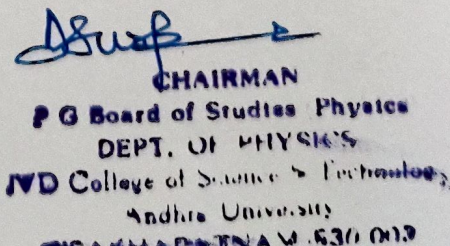 CHAIRMAN
P G Board of Studies Physics
DEPT. OF PHYSICS
JVD College of Science & Technology,
Andhra University
VISAKHAPATNAM-530 003